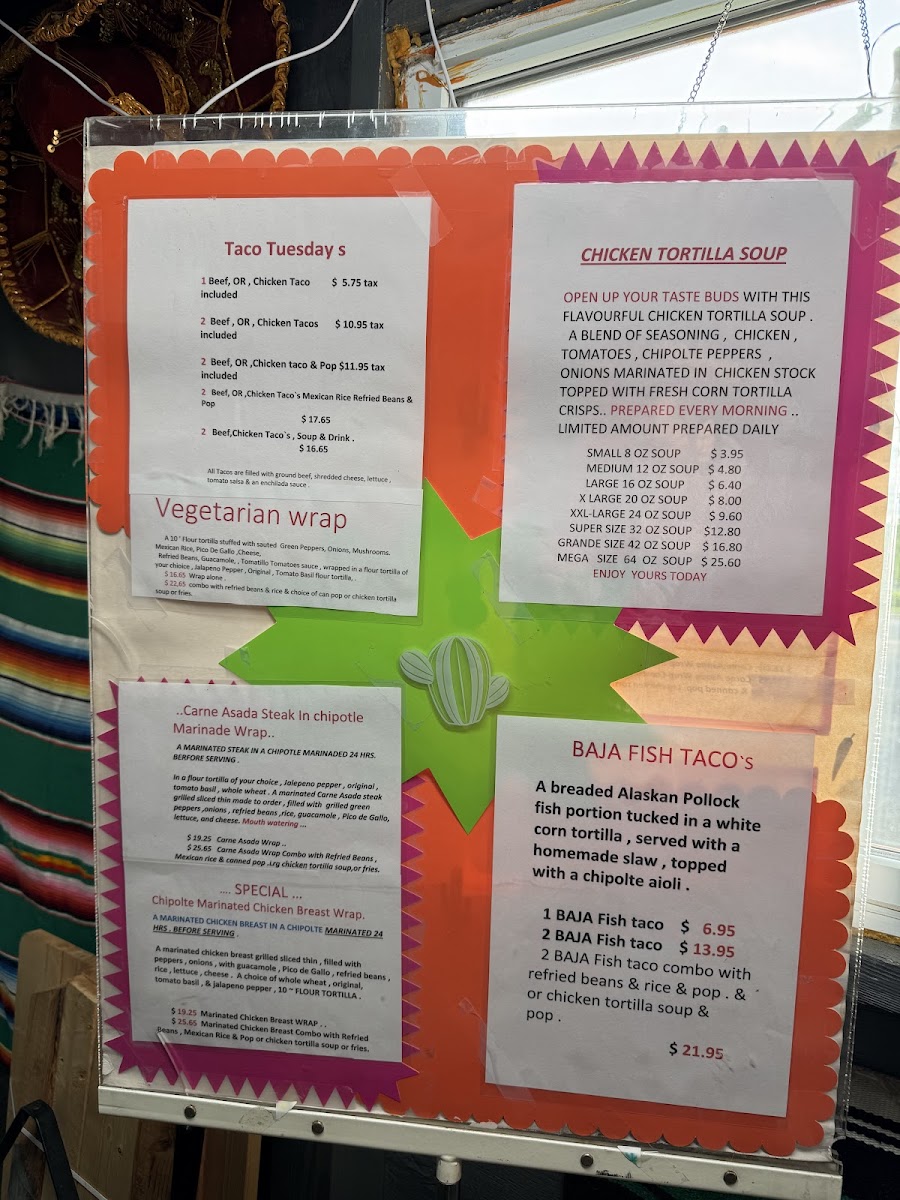 Taco Tuesday s
1 Beef, OR , Chicken Taco $ 5.75 tax
included
2 Beef , OR , Chicken Tacos $ 10.95 tax
included
2 Beef, OR ,Chicken taco & Pop $11.95 tax
included
2 Beef, OR ,Chicken Taco`s Mexican Rice Refried Beans &
Pop
$ 17.65
2 Beef,Chicken Taco`s , Soup & Drink .
$ 16.65
All Tacos are filled with ground beef, shredded cheese, lettuce ,
tomato salsa & an enchilada sauce .
Vegetarian wrap
A 10 ' Flour tortilla stuffed with sauted Green Peppers, Onions, Mushrooms.
Mexican Rice, Pico De Gallo ,Cheese,
Refried Beans, Guacamole, , Tomatillo Tomatoes sauce , wrapped in a flour tortilla of
your choice , Jalapeno Pepper , Original , Tomato Basil flour tortilla, .
$ 16.65 Wrap alone .
$ 22,65 combo with refried beans & rice & choice of can pop or chicken tortilla
soup or fries.
CHICKEN TORTILLA SOUP
OPEN UP YOUR TASTE BUDS WITH THIS
FLAVOURFUL CHICKEN TORTILLA SOUP .
A BLEND OF SEASONING , CHICKEN ,
TOMATOES , CHIPOLTE PEPPERS ,
ONIONS MARINATED IN CHICKEN STOCK
TOPPED WITH FRESH CORN TORTILLA
CRISPS.. PREPARED EVERY MORNING ..
LIMITED AMOUNT PREPARED DAILY
SMALL 8 OZ SOUP $ 3.95
MEDIUM 12 OZ SOUP $ 4.80
LARGE 16 OZ SOUP $ 6.40
X LARGE 20 OZ SOUP $ 8.00
XXL-LARGE 24 OZ SOUP $ 9.60
SUPER SIZE 32 OZ SOUP $12.80
GRANDE SIZE 42 OZ SOUP $ 16.80
MEGA SIZE 64 OZ SOUP $ 25.60
ENJOY YOURS TODAY
..Carne Asada Steak In chipotle
Marinade Wrap..
A MARINATED STEAK IN A CHIPOTLE MARINADED 24 HRS.
BERFORE SERVING .
In a flour tortilla of your choice , Jalepeno pepper , original ,
tomato basil , whole wheat . A marinated Carne Asada steak
grilled sliced thin made to order , filled with grilled green
peppers ,onions , refried beans ,rice, guacamole , Pico de Gallo,
lettuce, and cheese. Mouth watering ...
$ 19.25 Carne Asada Wrap ..
$ 25.65 Carne Asada Wrap Combo with Refried Beans ,
Mexican rice & canned pop .Lrg chicken tortilla soup,or fries.
.... SPECIAL ...
Chipolte Marinated Chicken Breast Wrap.
A MARINATED CHICKEN BREAST IN A CHIPOLTE MARINATED 24
HRS . BEFORE SERVING .
A marinated chicken breast grilled sliced thin , filled with
peppers , onions , with guacamole , Pico de Gallo , refried beans ,
rice , lettuce , cheese . A choice of whole wheat , original,
tomato basil , & jalapeno pepper , 10 ~ FLOUR TORTILLA .
$ 19.25 Marinated Chicken Breast WRAP . .
$ 25.65 Marinated Chicken Breast Combo with Refried
Beans , Mexican Rice & Pop or chicken tortilla soup or fries.
BAJA FISH TACO`s
A breaded Alaskan Pollock
fish portion tucked in a white
corn tortilla , served with a
homemade slaw , topped
with a chipolte aioli .
1 BAJA Fish taco $ 6.95
2 BAJA Fish taco $ 13.95
2 BAJA Fish taco combo with
refried beans & rice & pop . &
or chicken tortilla soup &
pop .
$ 21.95